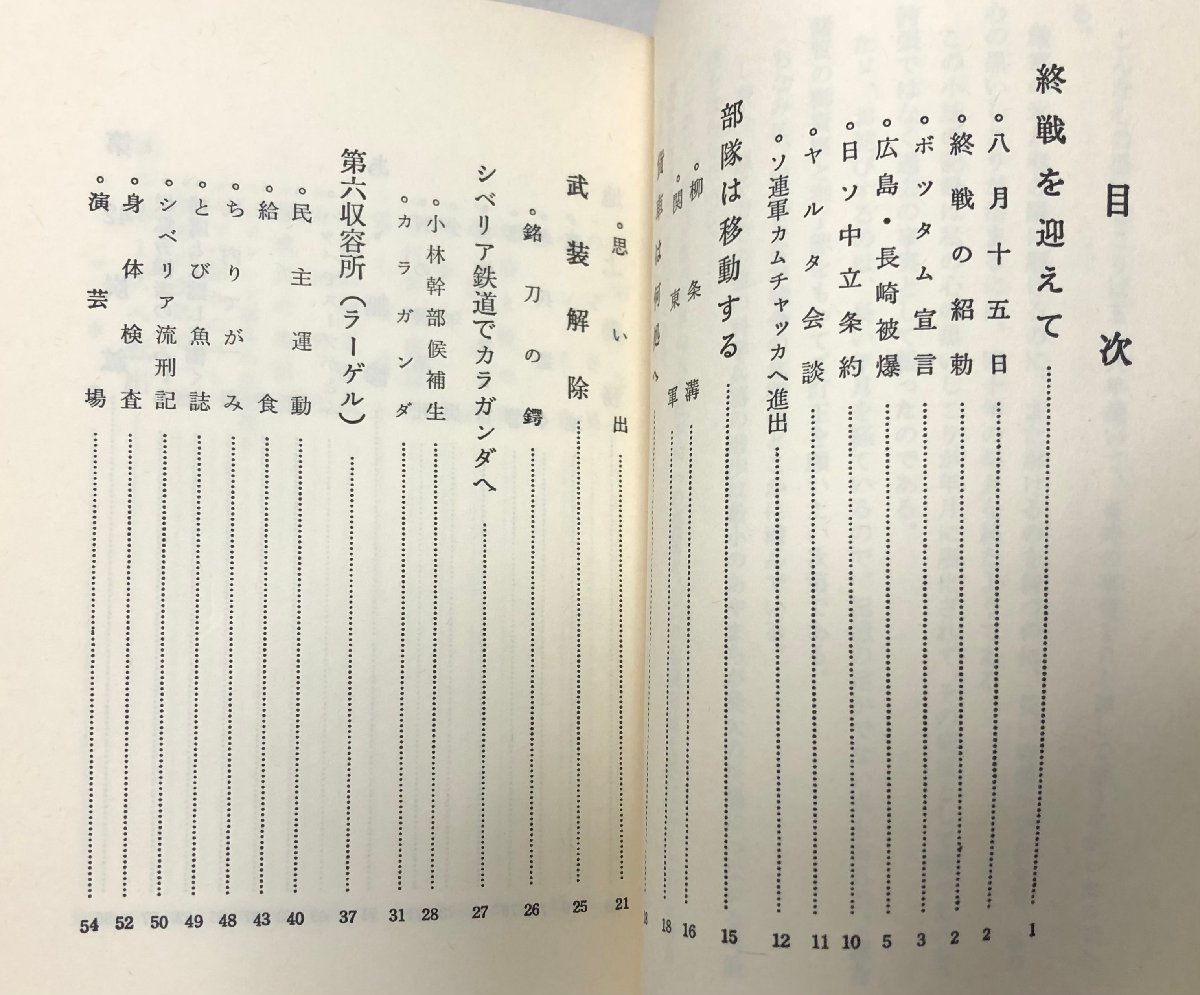 目次
終戦を迎えて……1
。八月十五日……2
。終戦の紹勅……2
。ポツタム宣言……3
。広島・長崎被爆……5
。日ソ中立条約……10
。ヤルタ会談……11
。ソ連軍カムチャッカへ進出……12
部隊は移動する……15
。柳条溝……16
。関東軍……18
。思い出……21
武装解除……25
。銘刀の鍔……26
シベリア鉄道でカラガンダへ……27
。小林幹部候補生……28
。カラガンダ……31
第六収容所(ラーゲル)……37
。民主運動……40
。給食……43
。ちりがみ……48
。とび魚誌……49
。シベリア流刑記……50
。身体検査……52
。演芸場……54